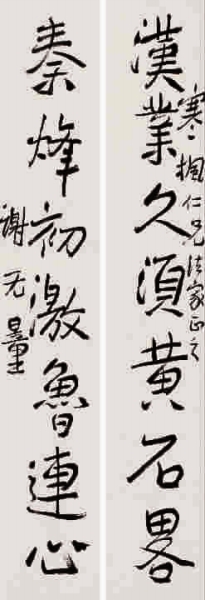 漢業久須黃石畧
寒楓仁兄法家正之
秦烽初激魯連心
謝无量